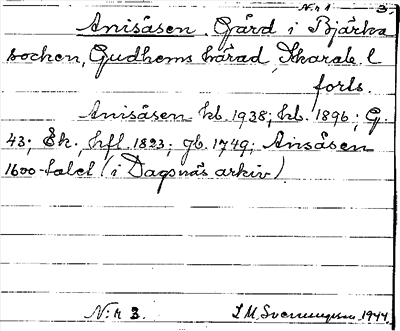 N:r 1 3.
Anisåsen. Gård i Bjärka
socken, Gudhems härad, Skarab. l
forts.
Anisåsen kb. 1938; hb. 1896; G.
43; Ek., hfl. 1823; gb. 1749; Anisåsen
1600-talet (i Dagsnäs arkiv).
N:r 3. S. M. Svenungsson 1944.